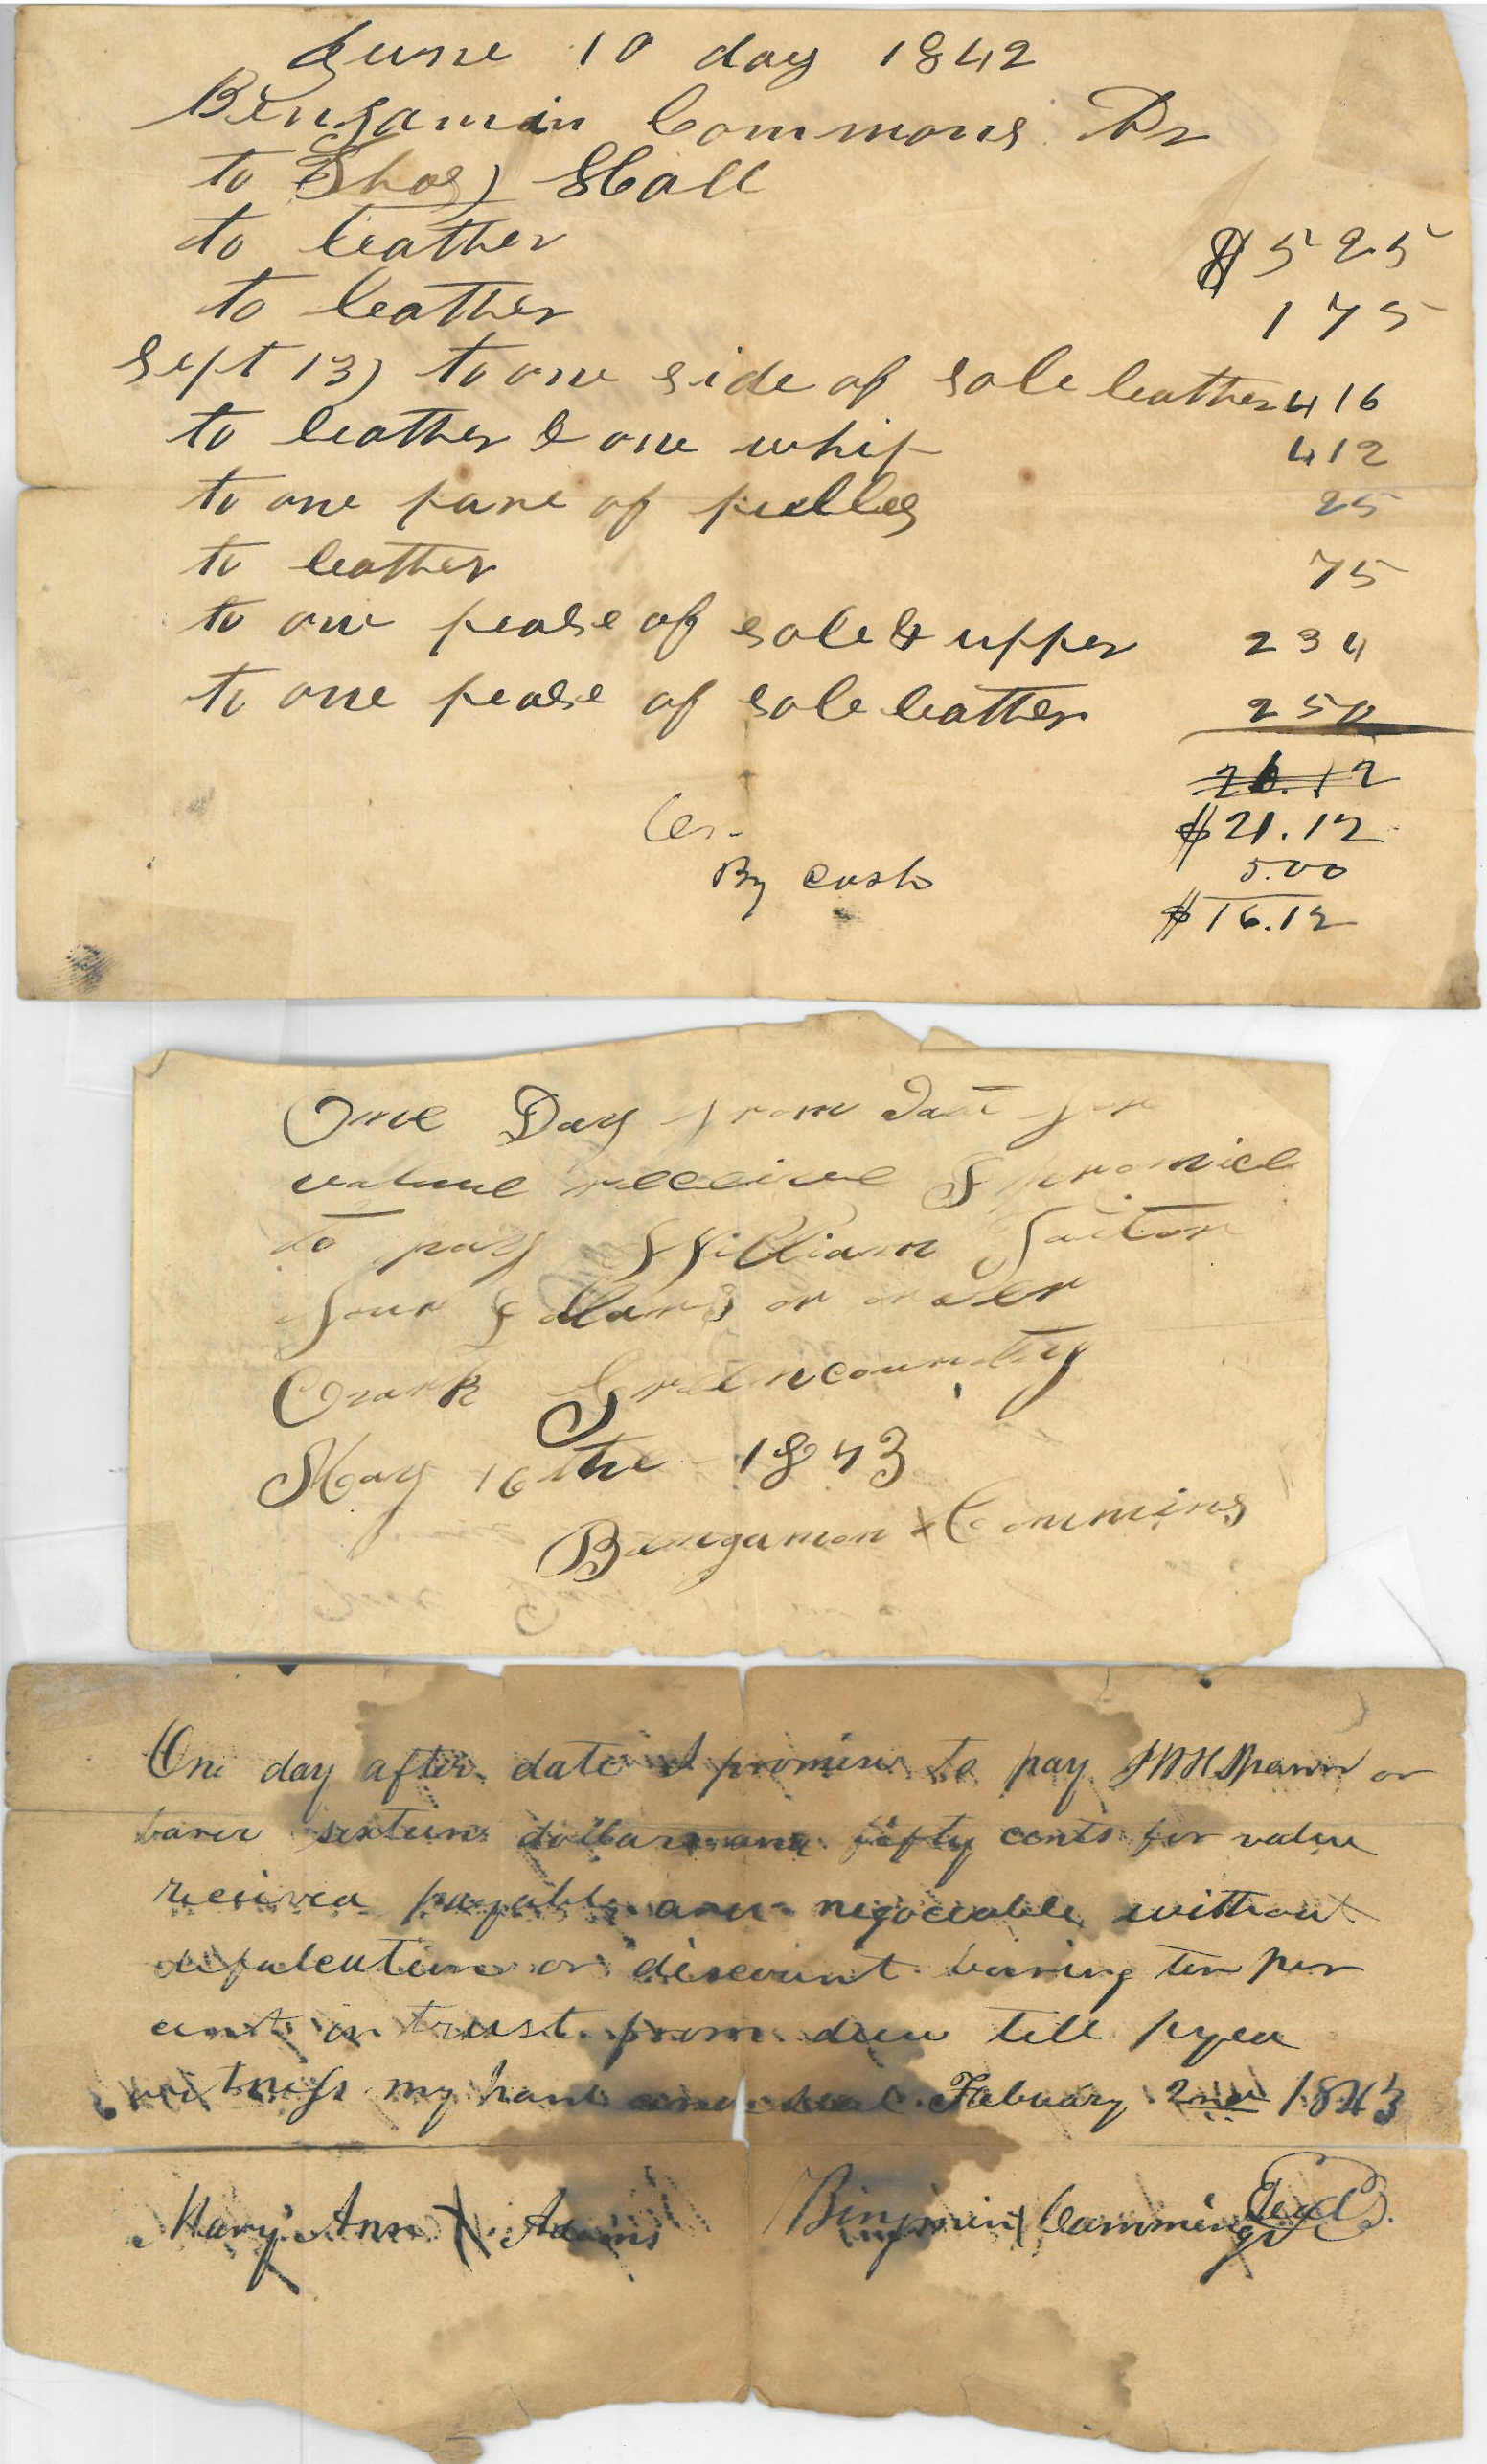 June 10 day 1842
Bengamin Commons Dr
to Thos) Hall
to leather $ 5 25
to leather 1 75
Sept 13) to one side of sole leather 4 16
to leather & one whip 4 12
to one pare of pulles 25
to leather 75
to one pease of sole & upper 2 34
to one pease of sole leather 2 50
26.12
$21.12
Cr.
By cash 5.00
$16.12
One Day from Date for
value receive I promice
to pay William
four dollars or order
Ozark Greencounty
May 16 the 1843
Bengamon x Commins
One day after date I promise to pay or
barer sixteen dollars and fifty cents for value
received payable and negociable without
defalcation or discount baring ten per
cent intrust from due till payed
witness my hand and seal Febuary 2nd 1843
Mary Ann X Adams
Binjmin X Cammings Seal